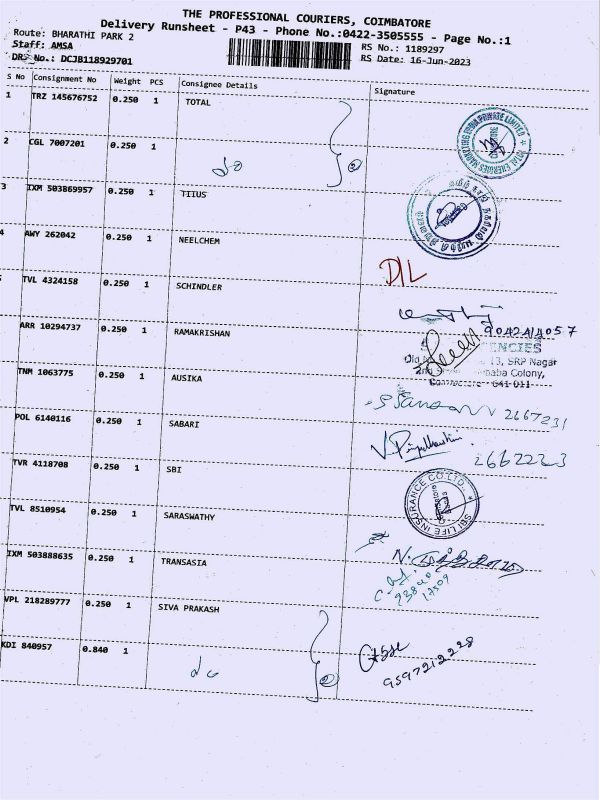 THE PROFESSIONAL COURIERS, COIMBATORE
Delivery Runsheet - P43 - Phone No.:0422-3505555 - Page No.:1
Route: BHARATHI PARK 2
RS No.: 1189297
Staff: AMSA
RS Date: 16-Jun-2023
DRS No.: DCJB118929701
S No Consignment No Weight PCS Consignee Details Signature
1 TRZ 145676752 0.250 1 TOTAL
2 CGL 7007201 0.250 1 do
3 IXM 503869957 0.250 1 TITUS
4 AWY 262042 0.250 1 NEELCHEM D/L
TVL 4324158 0.250 1 SCHINDLER
ARR 10294737 0.250 1 RAMAKRISHAN
13, SRP Nagar
Colony,
641 011
TNM 1063775 0.250 1 AUSIKA 2667231
POL 6140116 0.250 1 SABARI
TVR 4118708 0.250 1 SBI SBI LIFE INSURANCE CO.LTD.
TVL 8510954 0.250 1 SARASWATHY
IXM 503888635 0.250 1 TRANSASIA
VPL 218289777 0.250 1 SIVA PRAKASH
9597212228
KDI 840957 0.840 1 do